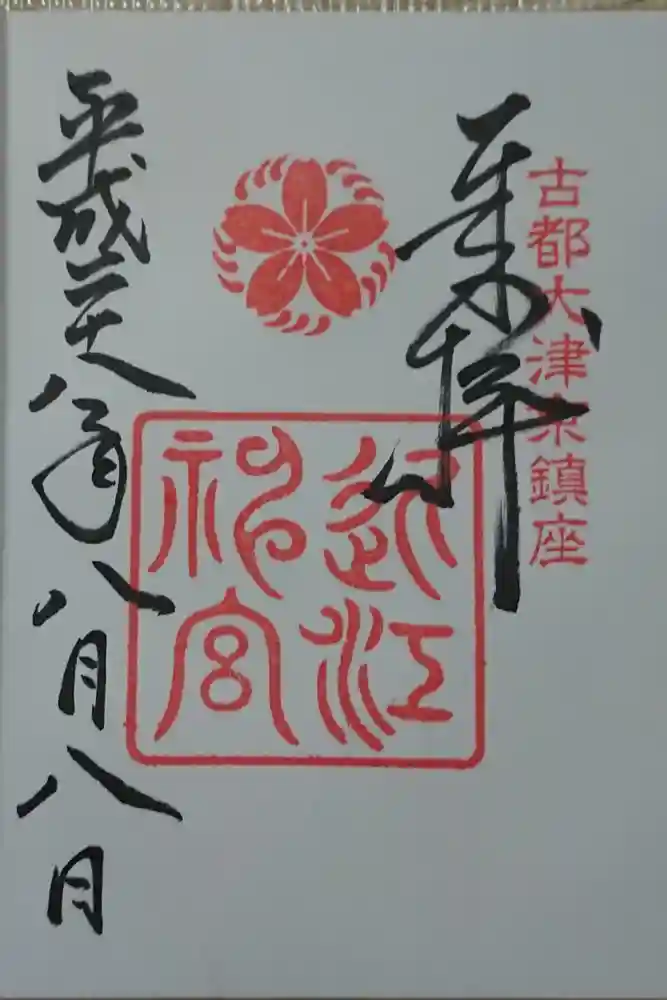 古都大津京鎮座
奉拝
近江
神宮
平成二十八年八月八日